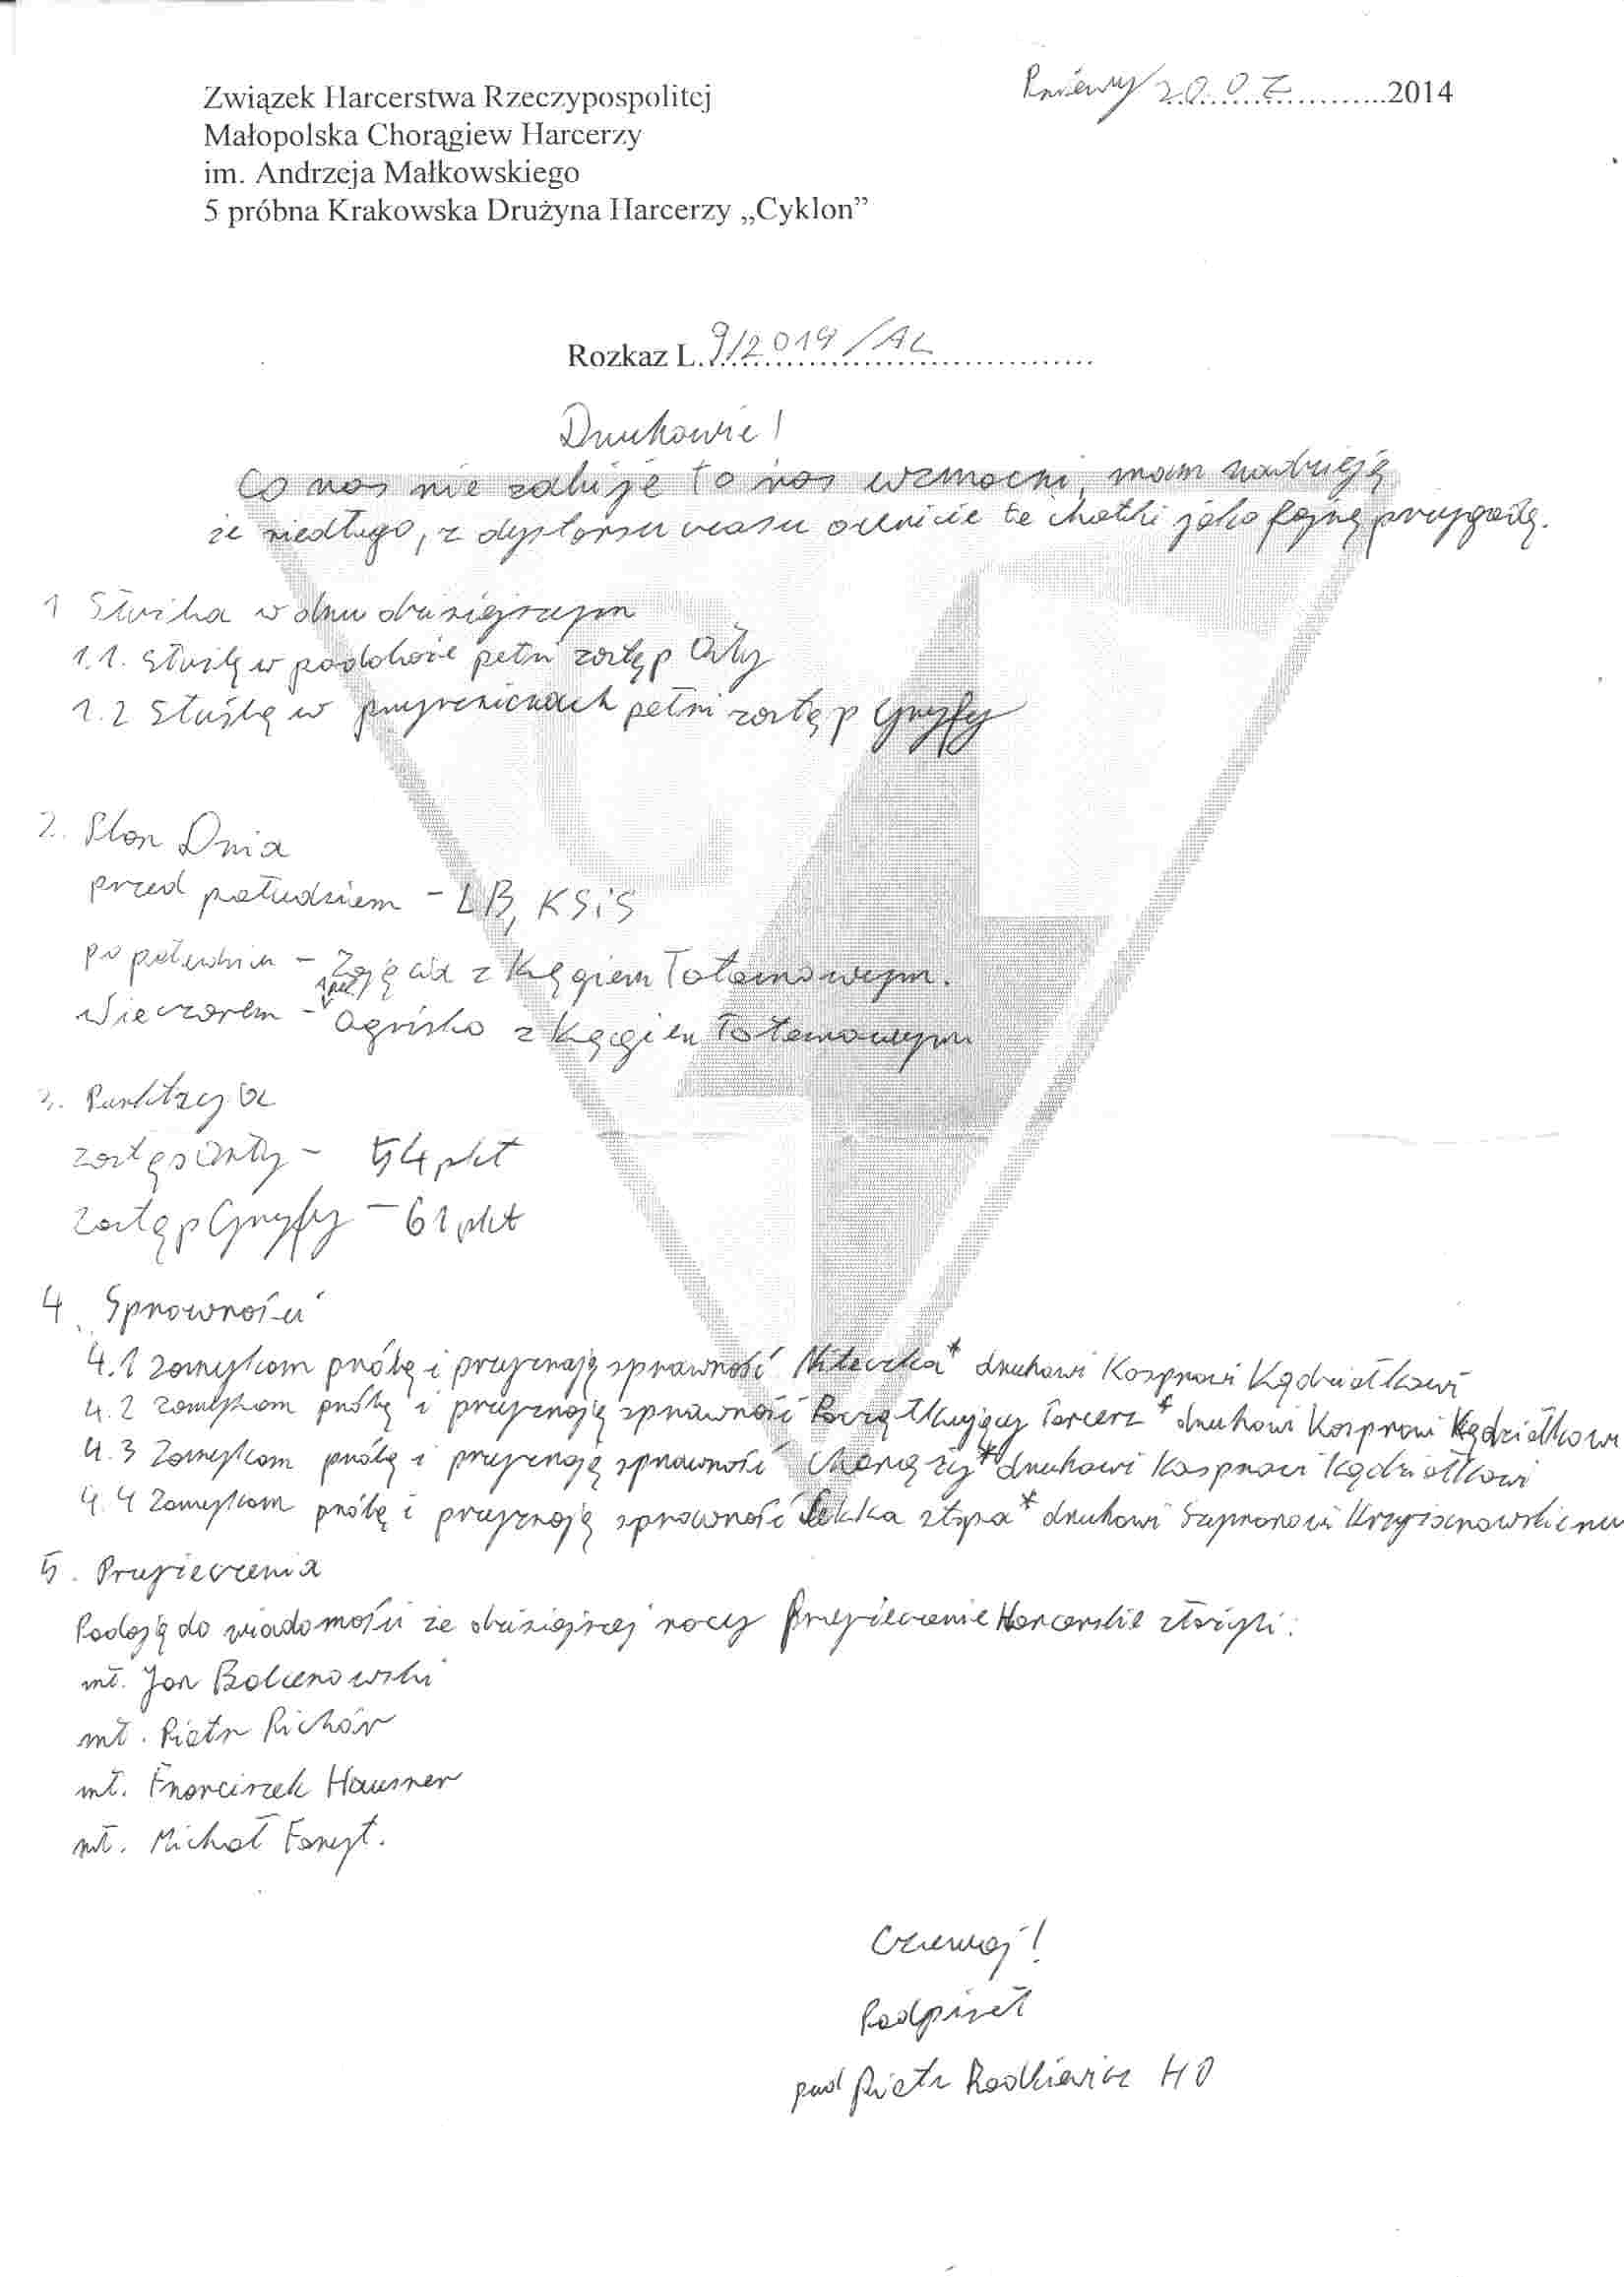 Związek Harcerstwa Rzeczypospolitej
Małopolska Chorągiew Harcerzy
im. Andrzeja Małkowskiego
5 próbna Krakowska Drużyna Harcerzy „Cyklon”
Pniewy 20.07.2014
Rozkaz L. 9/2014/AL
Druhowie!
Co nas nie zabije to nas wzmocni, mam nadzieję
że niedługo, z dystansu czasu ocenicie te chatki jako fajną przygodę.
1 Służba w dniu dzisiejszym
1.1. Służbę w podobozie pełni zastęp Orły
1.2 Służbę w pełni zastęp Gryfy
2. Plan Dnia
przed południem - LB, KSiS
po południu - Zajęcia z Kręgiem Totemowym.
Wieczorem - Ognisko z Kręgiem Totemowym
3. Punktacja
zastęp Orły - 54 pkt
zastęp Gryfy - 61 pkt
4. Sprawności
4.1 zamykam próbę i przyznaję sprawność * druhowi Kasprowi Kądziołkowi
4.2 zamykam próbę i przyznaję sprawność Początkujący Tarcerz * druhowi Kasprowi Kądziołkowi
4.3 Zamykam próbę i przyznaję sprawność Chorąży * druhowi Kasprowi Kądziołkowi
4.4 Zamykam próbę i przyznaję sprawność Lekka stopa * druhowi Szymonowi Krzyżanowskiemu
5. Przyrzeczenia
Podaję do wiadomości że dzisiejszej nocy Przyrzeczenie Harcerskie złożyli:
mł. Jan Bolcenowski
mł. Piotr Pichór
mł. Franciszek Hausner
mł. Michał Faryt.
Czuwaj!
Podpisał
pwd Piotr Radkiewicz HO